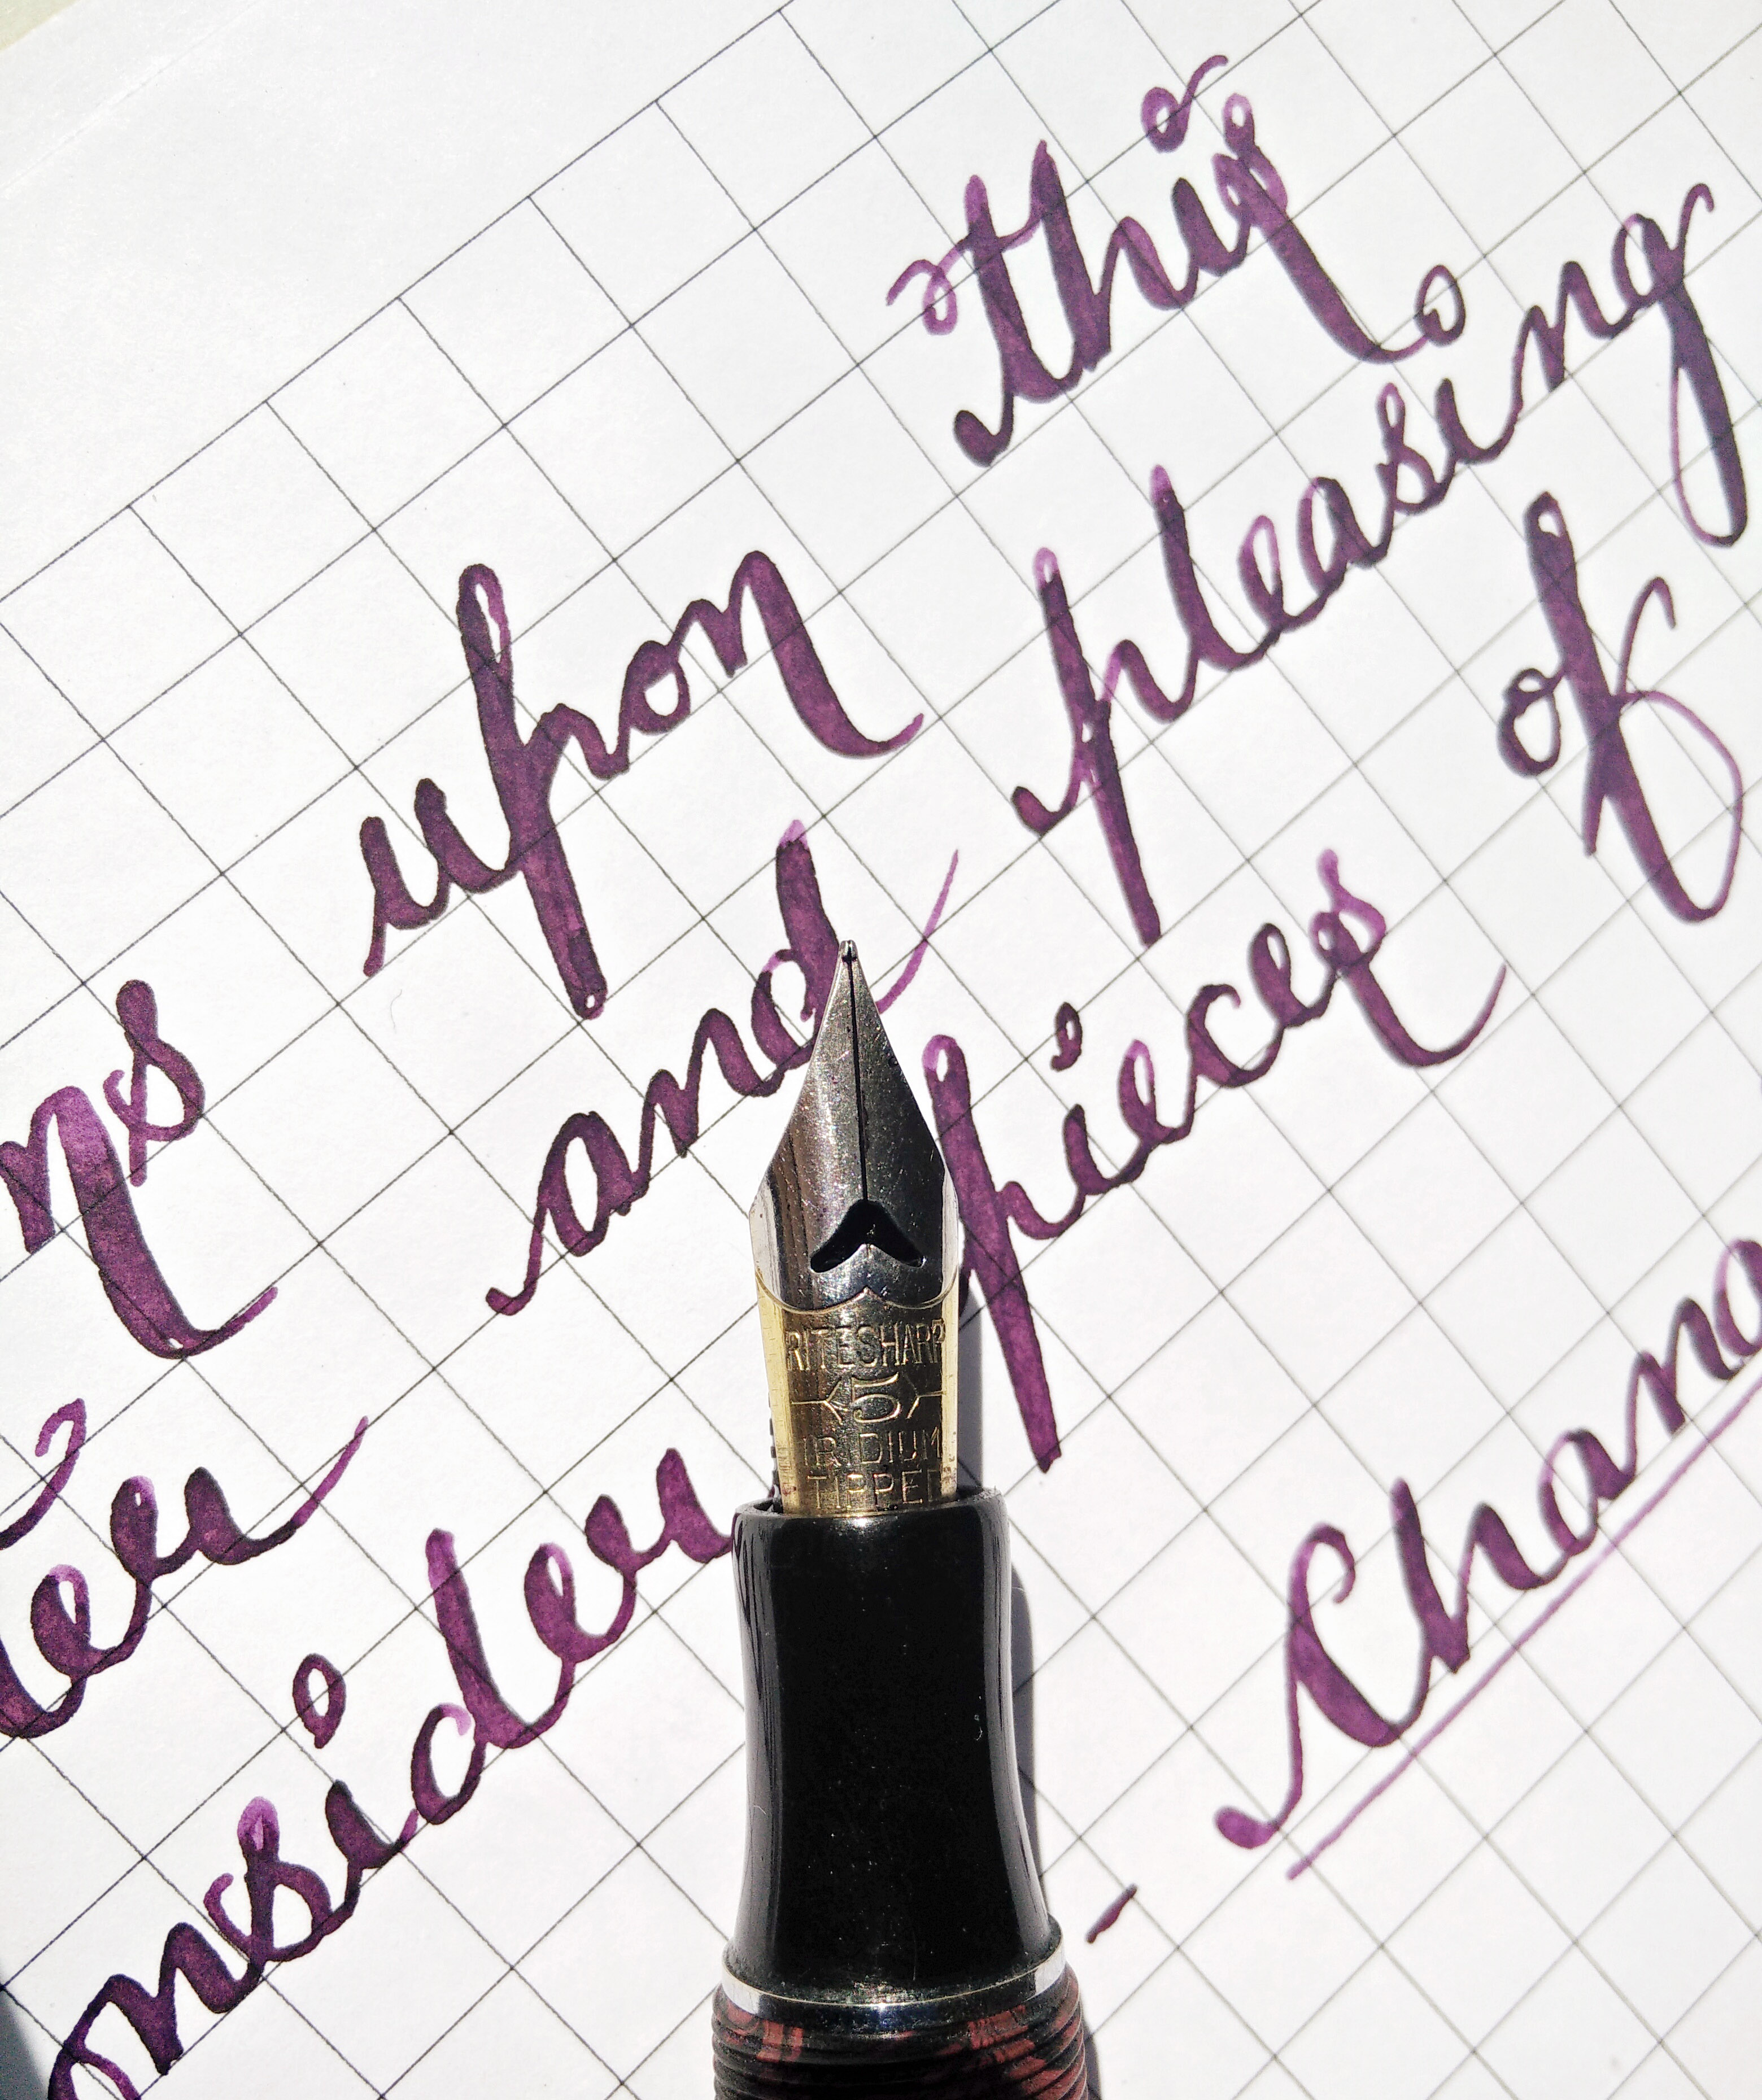 ns upon this
er and pleasing
onsider pieces of
- Chan
RITESHARP
5
IRIDIUM
TIPPED